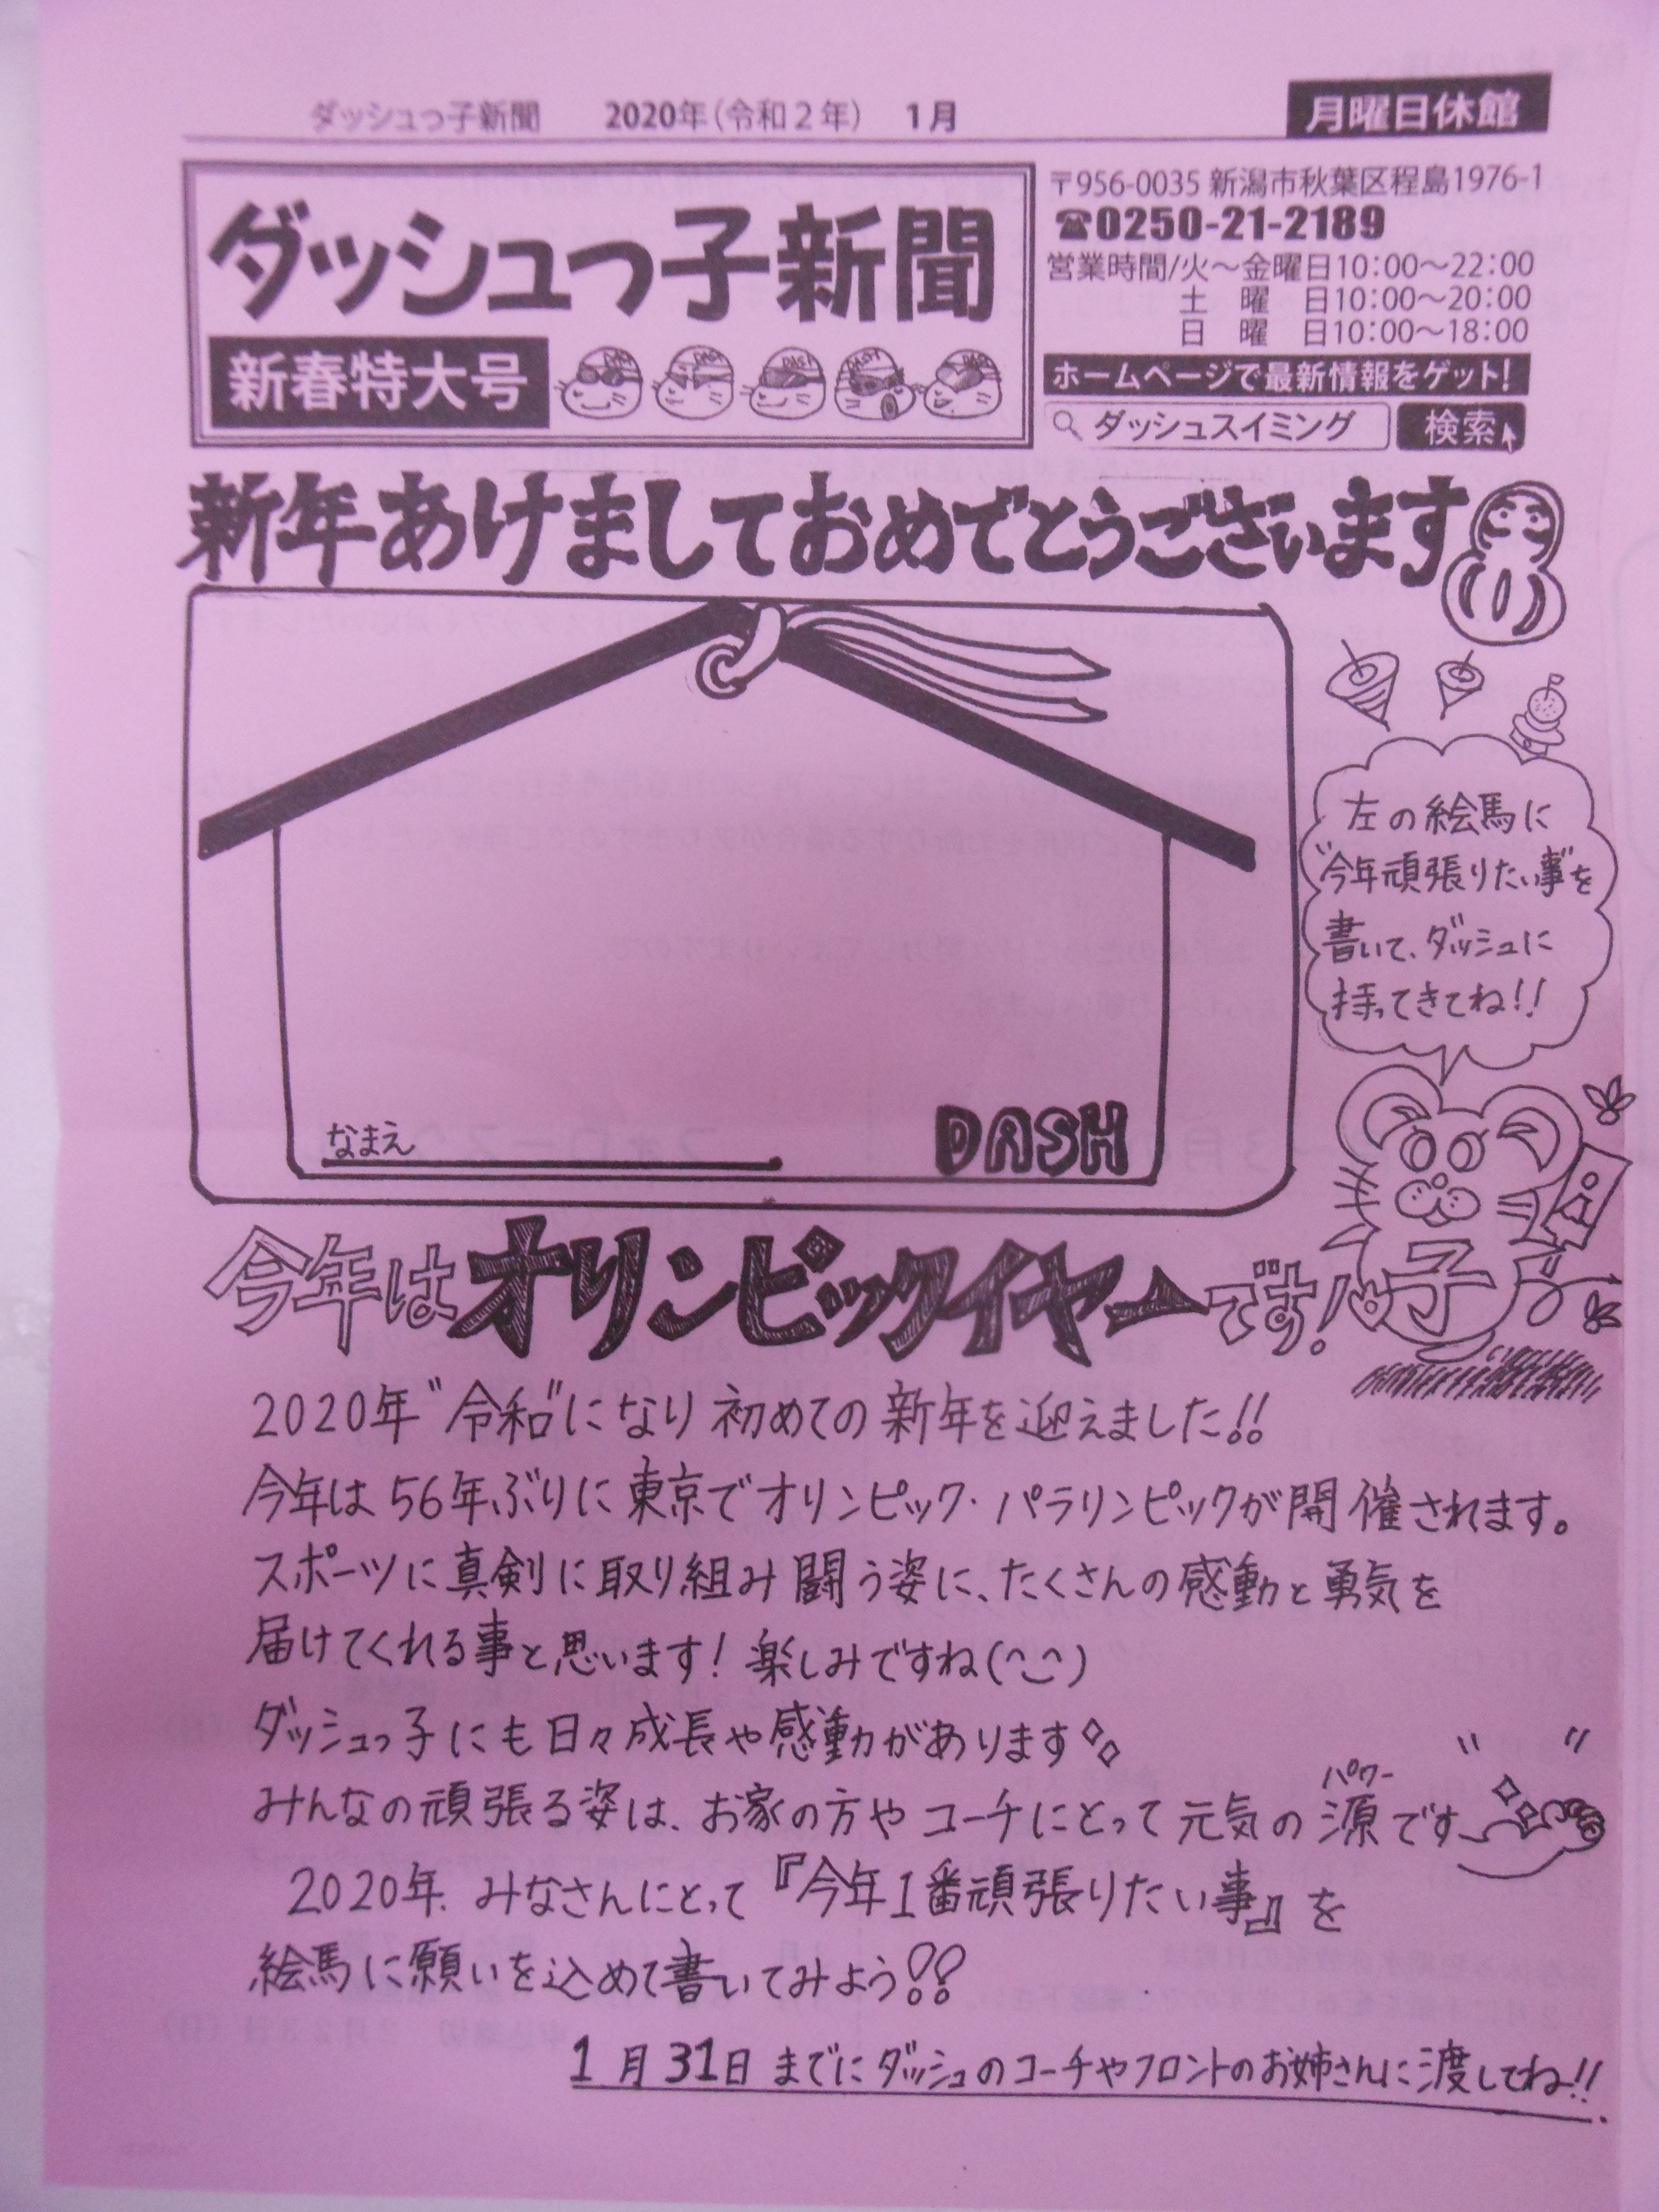 ダッシュっ子新聞 2020年(令和2年) 1月
月曜日休館
ダッシュっ子新聞
新春特大号
〒956-0035 新潟市秋葉区程島1976-1
☎0250-21-2189
営業時間/火～金曜日10:00～22:00
土曜日10:00～20:00
日曜日10:00～18:00
ホームページで最新情報をゲット!
ダッシュスイミング 検索
新年あけましておめでとうございます
左の絵馬に
"今年頑張りたい事"を
書いて、ダッシュに
持ってきてね!!
なまえ
DASH
子
今年はオリンピックイヤーです!
2020年"令和"になり初めての新年を迎えました!!
今年は56年ぶりに東京でオリンピック・パラリンピックが開催されます。
スポーツに真剣に取り組み闘う姿に、たくさんの感動と勇気を
届けてくれる事と思います! 楽しみですね(^_^)
ダッシュっ子にも日々成長や感動があります
みんなの頑張る姿は、お家の方やコーチにとって元気の源です
パワー
2020年、みなさんにとって『今年1番頑張りたい事』を
絵馬に願いを込めて書いてみよう!!
1月31日までにダッシュのコーチやフロントのお姉さんに渡してね!!